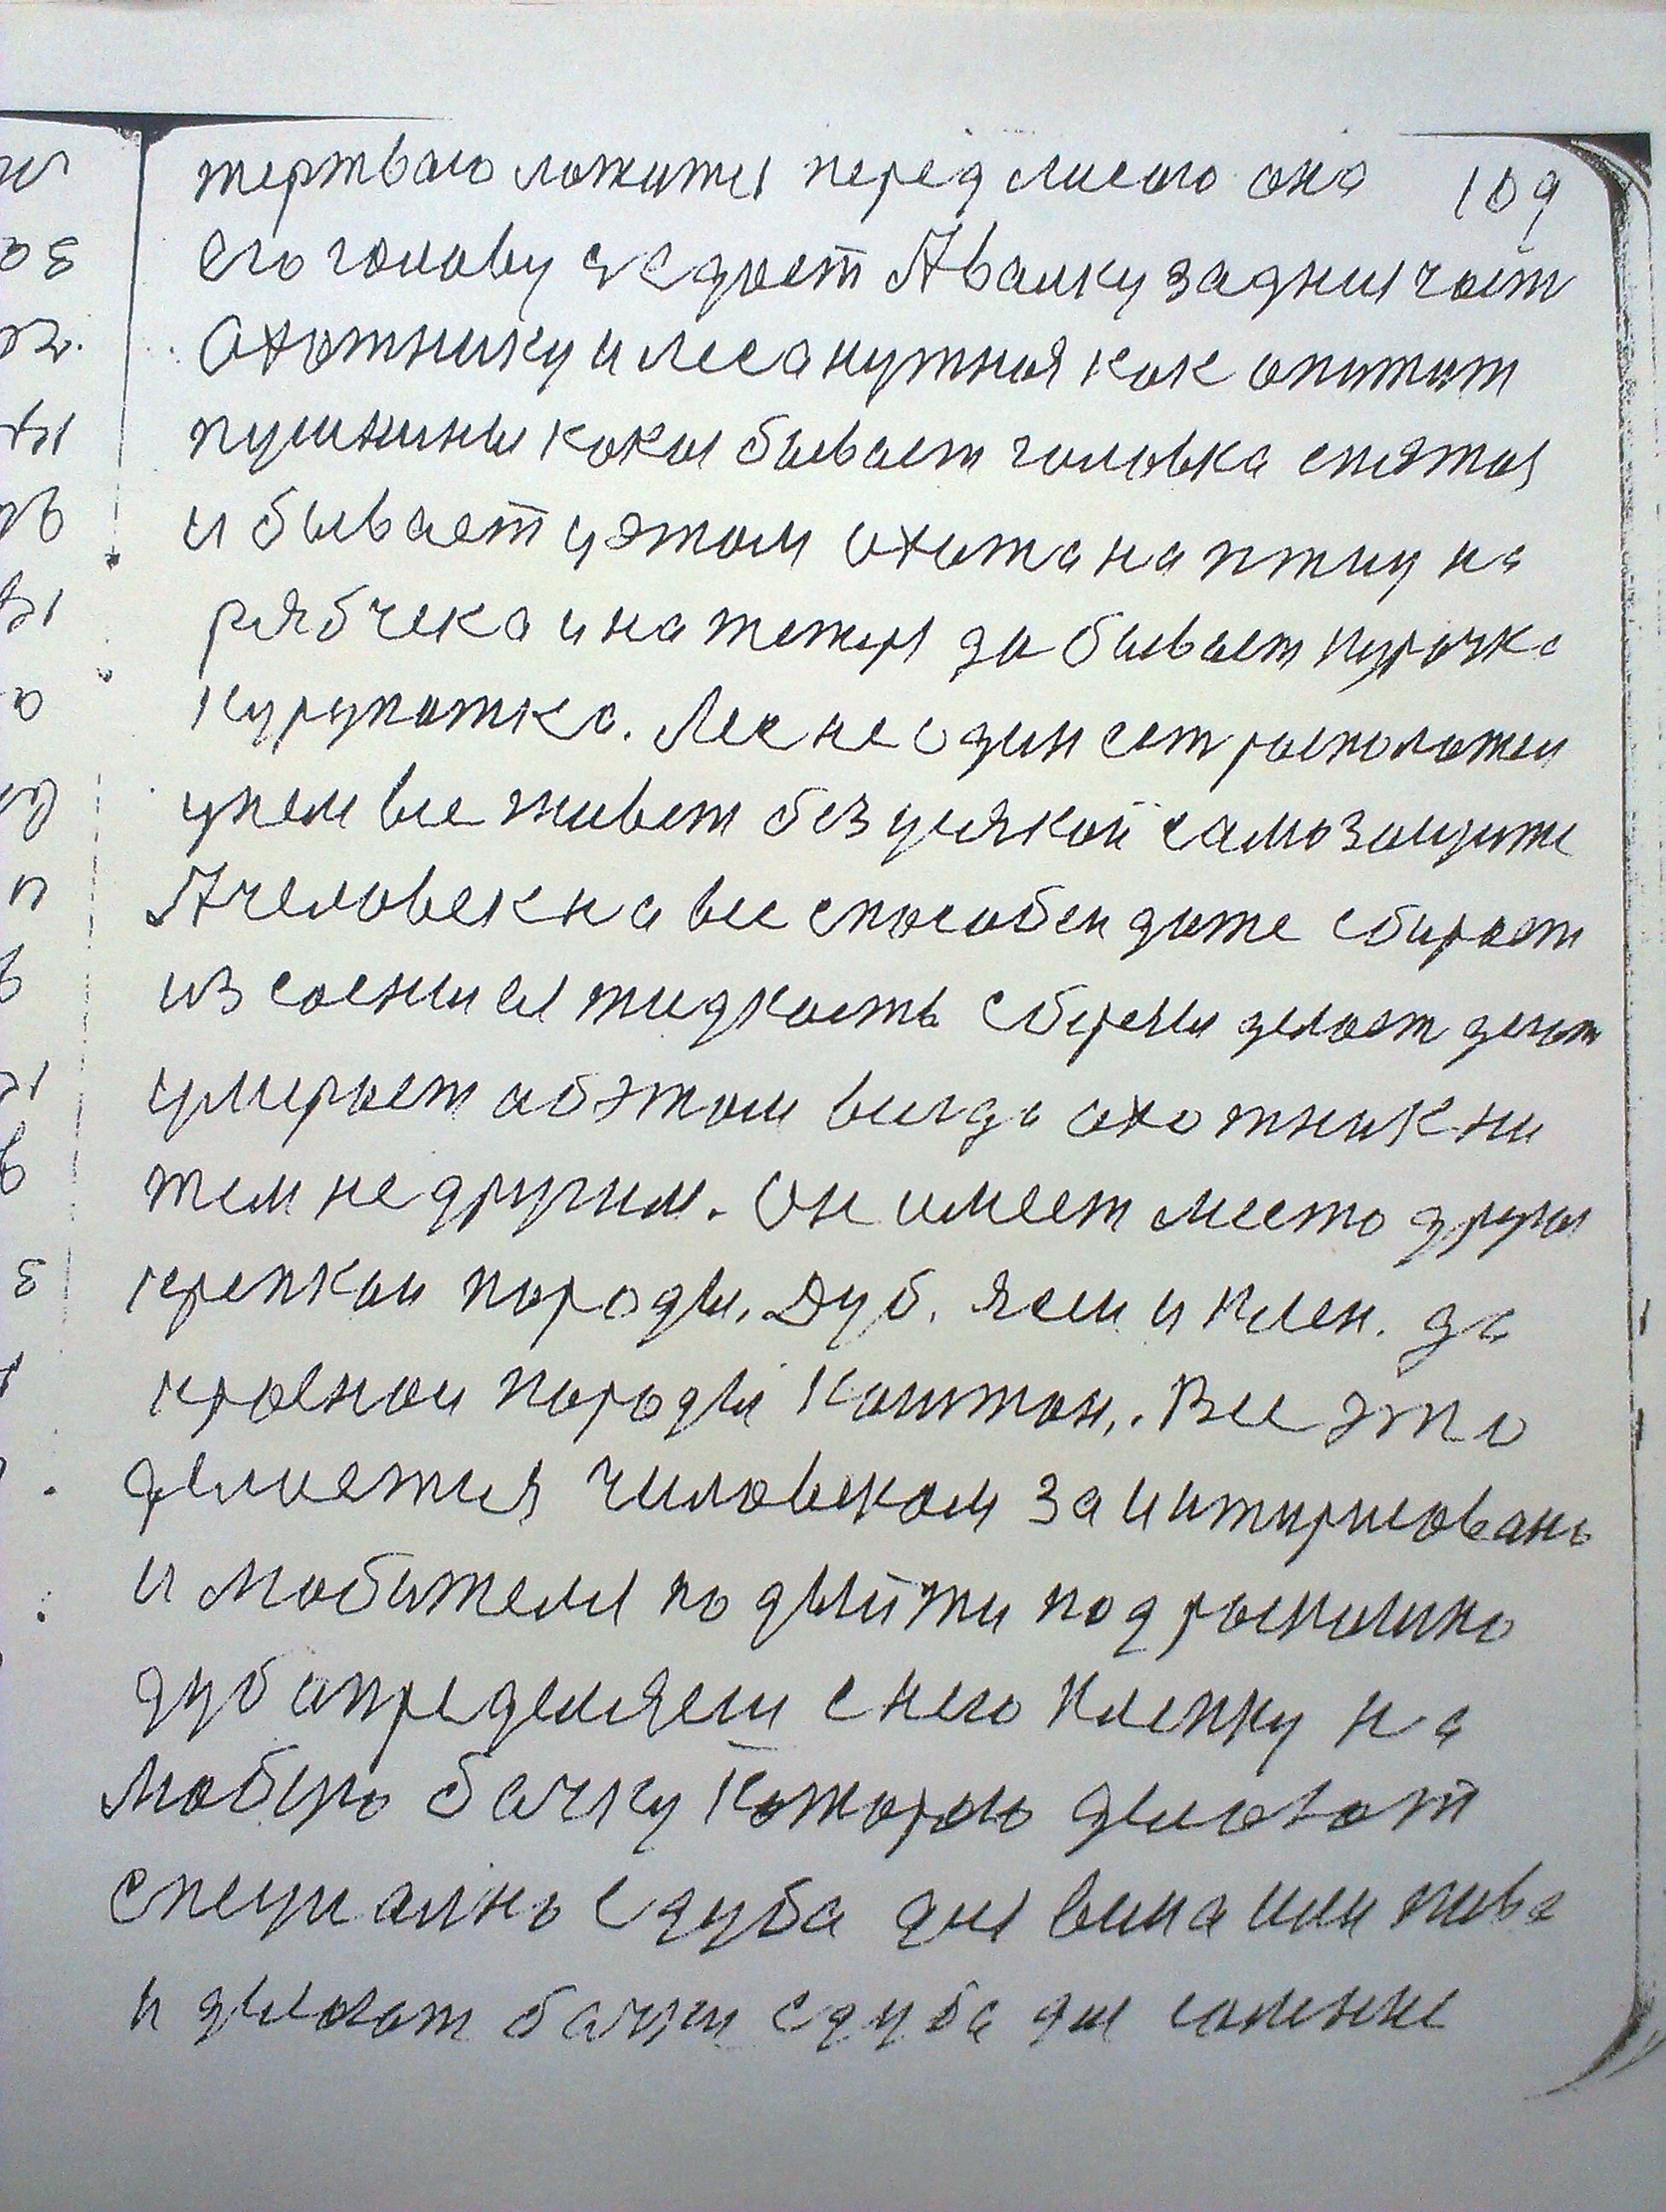 тертвого ложится перед лисою она 109
его голову зедает А валку задния част
Охотнику и леса нутная как опитит
пушнины какая бывает головка снятоя
и бывает у этом охота на птицу на
рябчека и на тетеря добывает курочка
Курупатка. Лес не один сет расположен
у нем все живет без усякой самозащите
А человек на все способен даже сбирает
из сосни ея жидкость сбирали делает
умирает об этом всегда охотник ни
тем не другим. Он имеет место другоя
крепкои породы. Дуб. Ясен и клен. да
красной породы Каштан. Все это
делается чиловеком заинтирисовань
и любителя подыйти под
дуб определяем с него клепку на
любую бачку которою делают
специално с дуба для вина или пива
и делают бачки с дуба для солення